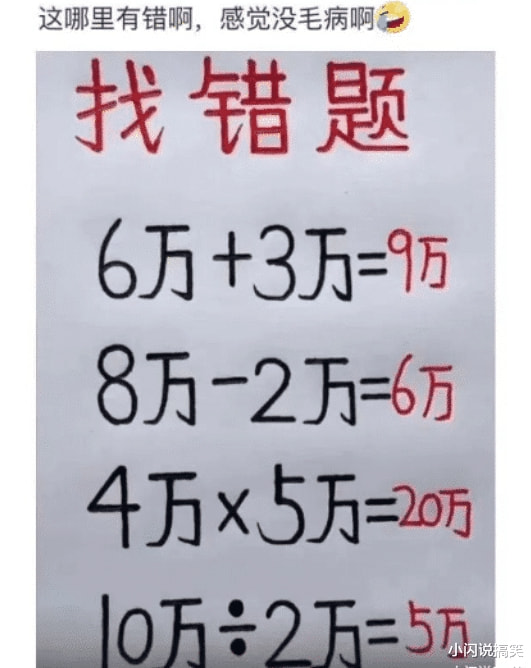 这哪里有错啊，感觉没毛病啊🤣
找错题
6万+3万=9万
8万-2万=6万
4万×5万=20万
10万÷2万=5万
小闪说搞笑